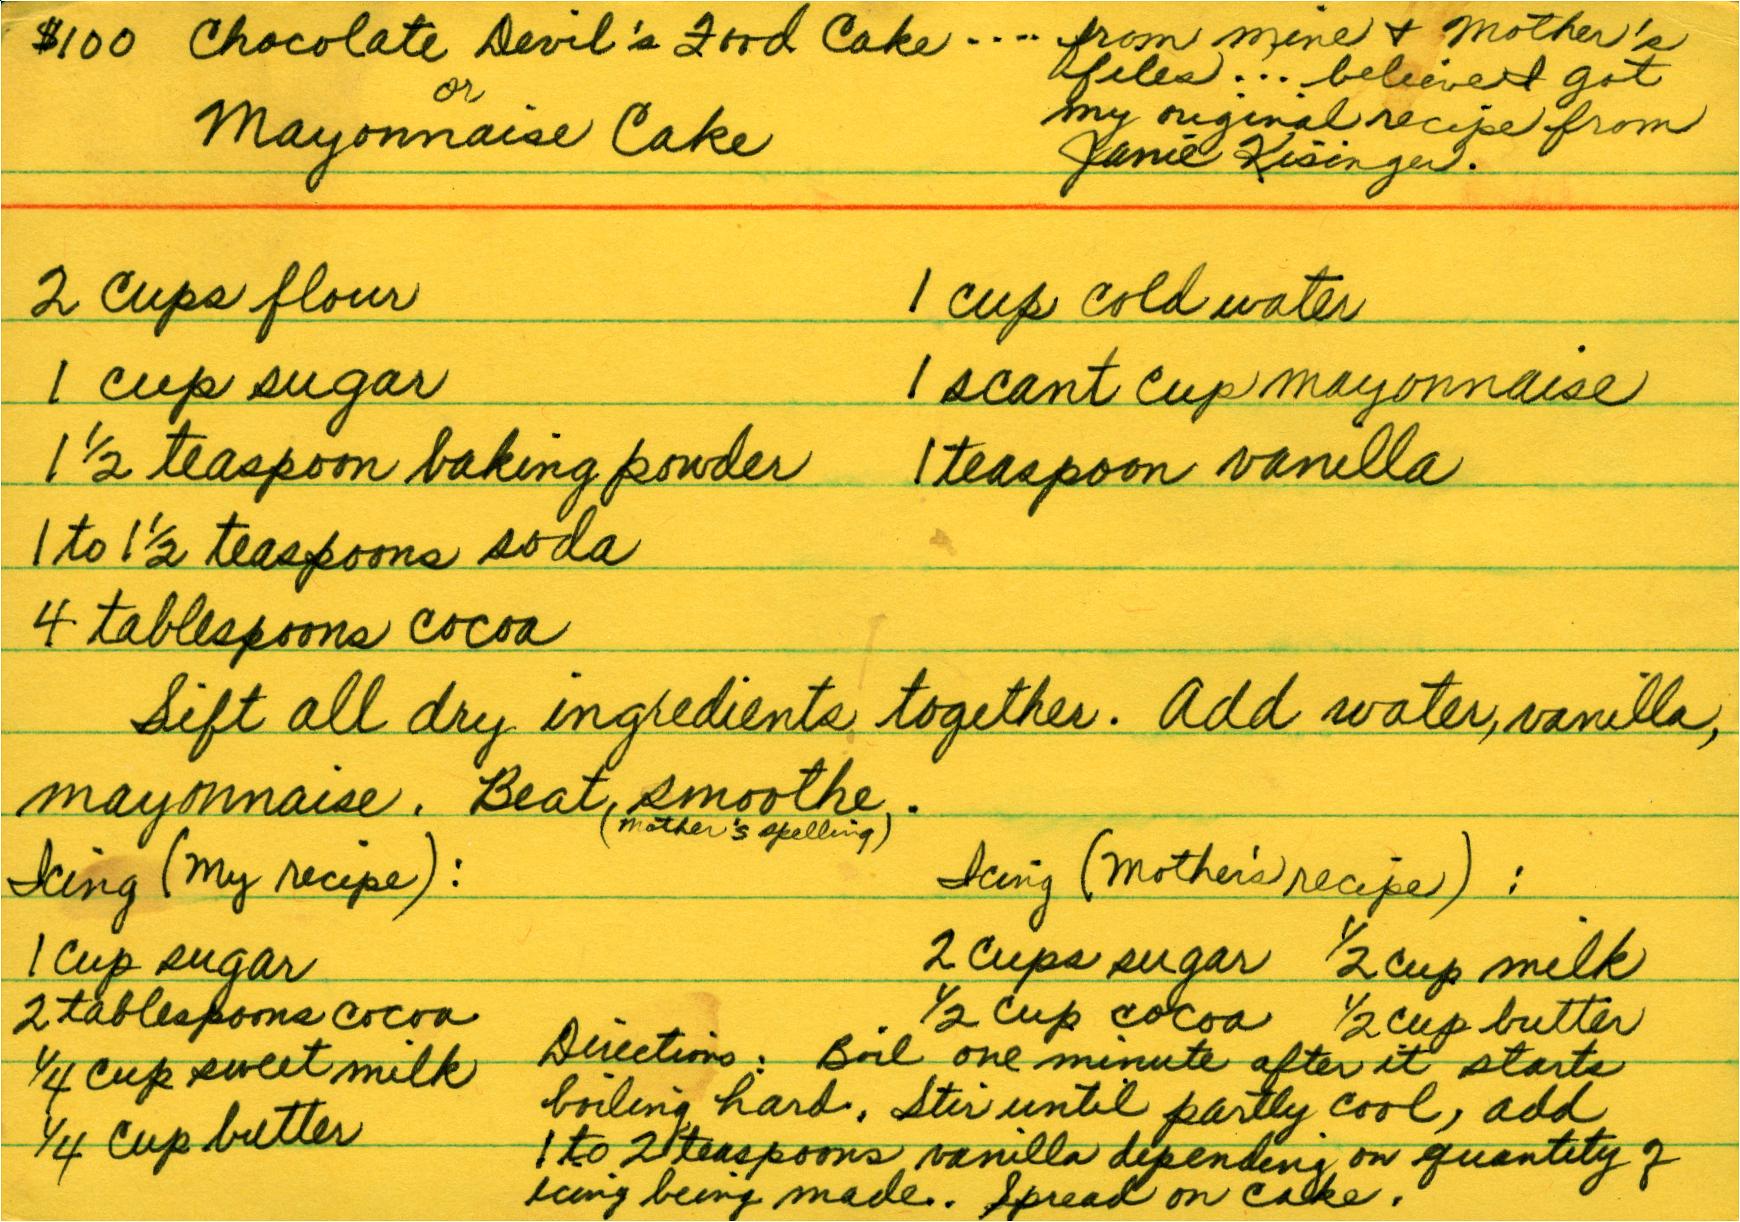 $100 Chocolate Devil's Food Cake ....
or
Mayonnaise Cake
from mine & Mother's
files ... believe I got
my original recipe from
Janie Kisinger.
2 cups flour
1 cup sugar
1 1/2 teaspoon baking powder
1 to 1 1/2 teaspoons soda
4 tablespoons cocoa
1 cup cold water
1 scant cup mayonnaise
1 teaspoon vanilla
Sift all dry ingredients together. Add water, vanilla,
mayonnaise. Beat smoothe.
(Mother's spelling)
Icing (My recipe):
1 cup sugar
2 tablespoons cocoa
1/4 cup sweet milk
1/4 cup butter
Icing (Mother's recipe):
2 cups sugar 1/2 cup milk
1/2 cup cocoa 1/2 cup butter
Directions: Boil one minute after it starts
boiling hard. Stir until partly cool, add
1 to 2 teaspoons vanilla depending on quantity of
icing being made. Spread on cake.